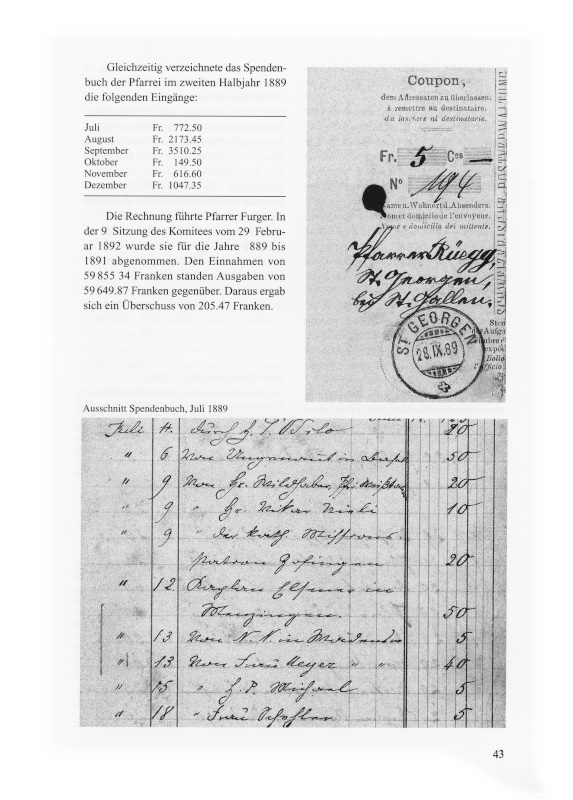 Gleichzeitig verzeichnete das Spenden-
buch der Pfarrei im zweiten Halbjahr 1889
die folgenden Eingänge:
Juli Fr. 772.50
August Fr. 2173.45
September Fr. 3510.25
Oktober Fr. 149.50
November Fr. 616.60
Dezember Fr. 1047.35
Die Rechnung führte Pfarrer Furger. In
der 9 Sitzung des Komitees vom 29 Febru-
ar 1892 wurde sie für die Jahre 889 bis
1891 abgenommen. Den Einnahmen von
59 855 34 Franken standen Ausgaben von
59 649.87 Franken gegenüber. Daraus ergab
sich ein Überschuss von 205.47 Franken.
Coupon,
dem Adressaten zu überlassen.
à remettre au destinataire.
da lasciare al destinatario.
Fr. 5 Ces —
No 194
Name u. Wohnort d. Absenders.
Nom et domicile de l'envoyeur.
Nome e domicilio del mittente.
Pfarrer Rüegg,
St. Georgen,
bei St. Gallen.
ST. GEORGEN
28.IX.89
Ausschnitt Spendenbuch, Juli 1889
Juli 4. durch 20
" 6 Von in Basel 50
" 9 Von Hr. Wildhaber, 20
" 9 " Hr. Vikar 10
" 9 " der kath. Missions-
Zofingen 20
" 12. Kaplan Elsener in
Menzingen. 50
" 13 Von N. N. in 5
" 13 Von Frau Meyer " " 40
" 15 " H. P. Michael 5
" 18 " Frau 5
43